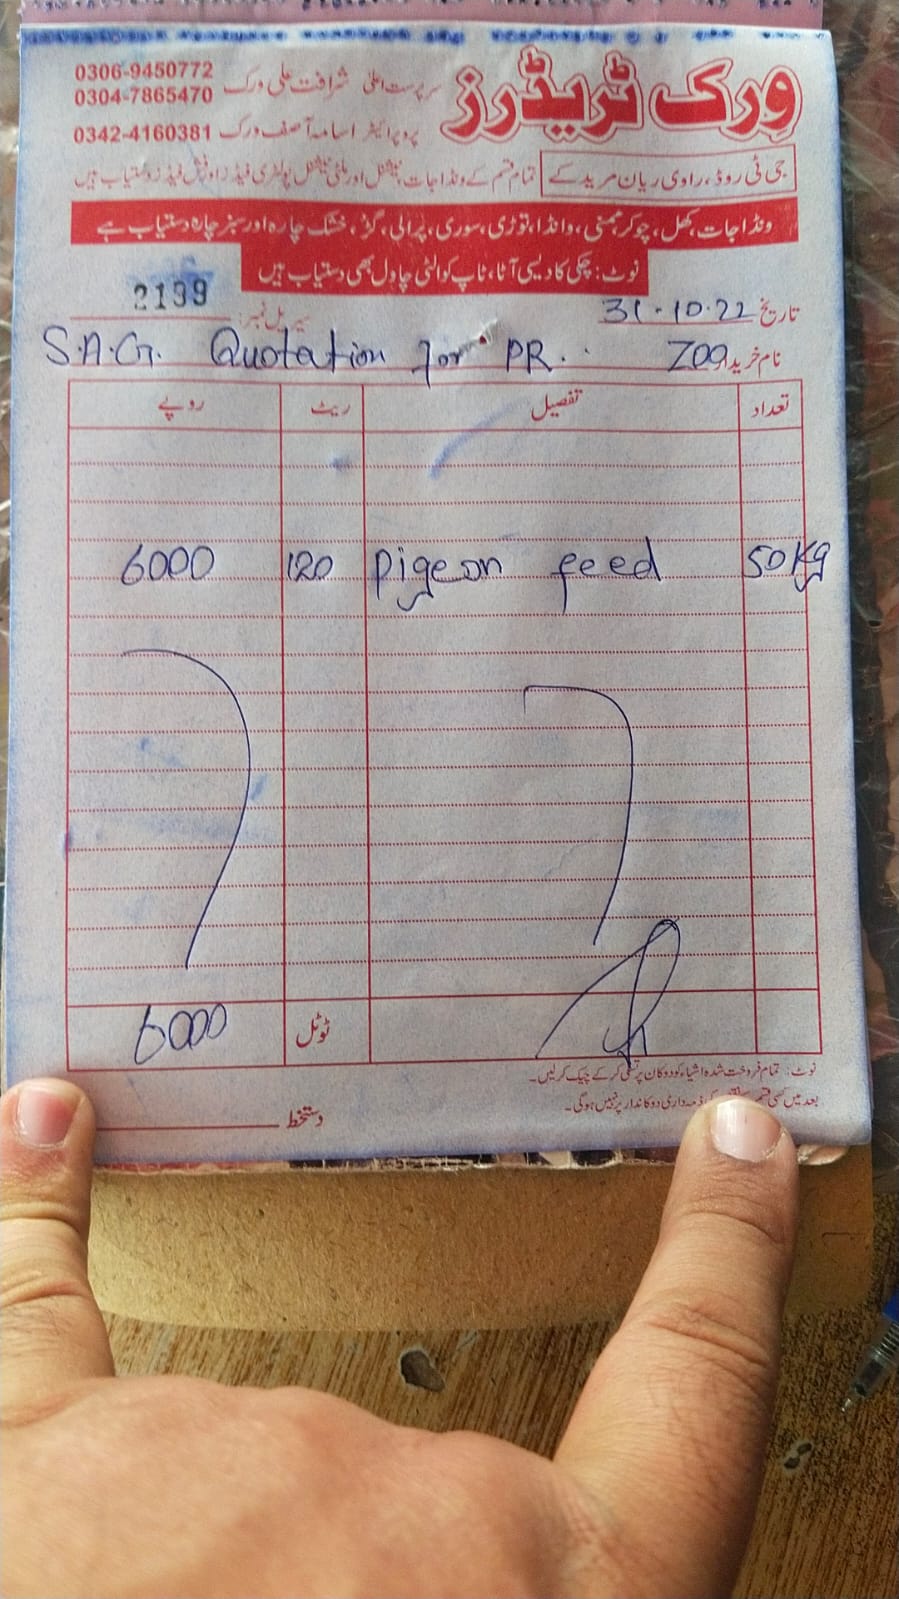 ورک ٹریڈرز
سرپرست اعلیٰ شرافت علی ورک 0306-9450772
0304-7865470
پروپرائیٹر اسامہ آصف ورک 0342-4160381
جی ٹی روڈ، راوی ریان مریدکے
تمام قسم کے ونڈا جات، نیشنل اور ملٹی نیشنل پولٹری فیڈز اور فش فیڈز دستیاب ہیں
ونڈا جات، کھل، چوکر، وانڈا، توڑی، سوری، پرالی، گڑ، خشک چارہ اور سبز چارہ دستیاب ہے
نوٹ: چکی کا دیسی آٹا، ٹاپ کوالٹی چاول بھی دستیاب ہیں
تاریخ 31-10-22
سیریل نمبر: 2199
نام خریدار ZOO
S.A.G. Quotation for PR.
تعداد تفصیل ریٹ روپے
50 Kg pigeon feed 120 6000
ٹوٹل 6000
نوٹ: تمام فروخت شدہ اشیاء کو دوکان پر تسلی کر کے چیک کر لیں۔
بعد میں کسی قسم ذمہ داری دوکاندار پر نہیں ہوگی۔
دستخط